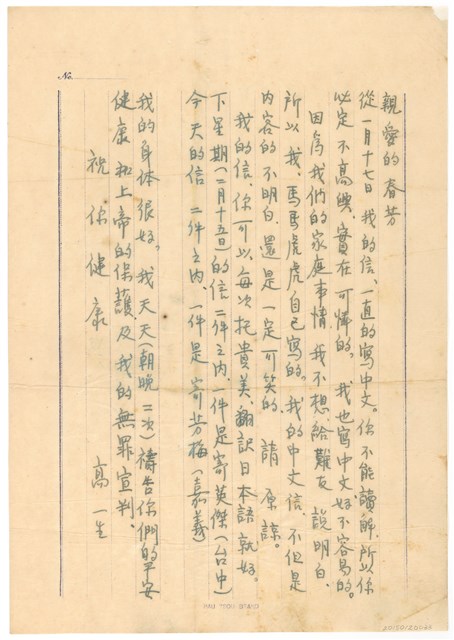 No.
親愛的春芳
從一月十七日我的信、一直的寫中文。你不能讀解、所以你
必定不高興、實在可憐的。我也寫中文、好不容易的。
因為我們的家庭事情、我不想給難友說明白、
所以我、馬馬虎虎自己寫的。我的中文信、不但是
内容的不明白、還是一定可笑的、請原諒。
我的信、你可以每次托貴美、翻訳日本語就好。
下星期(二月十五日)的信二件之内、一件是寄英傑(台中)
今天的信二件之内、一件是寄芳梅(嘉義)
我的身体很好。我天天(朝晩二次)禱告你們的平安
健康和上帝的保護、及我的無罪宣判、
祝你健康
高一生